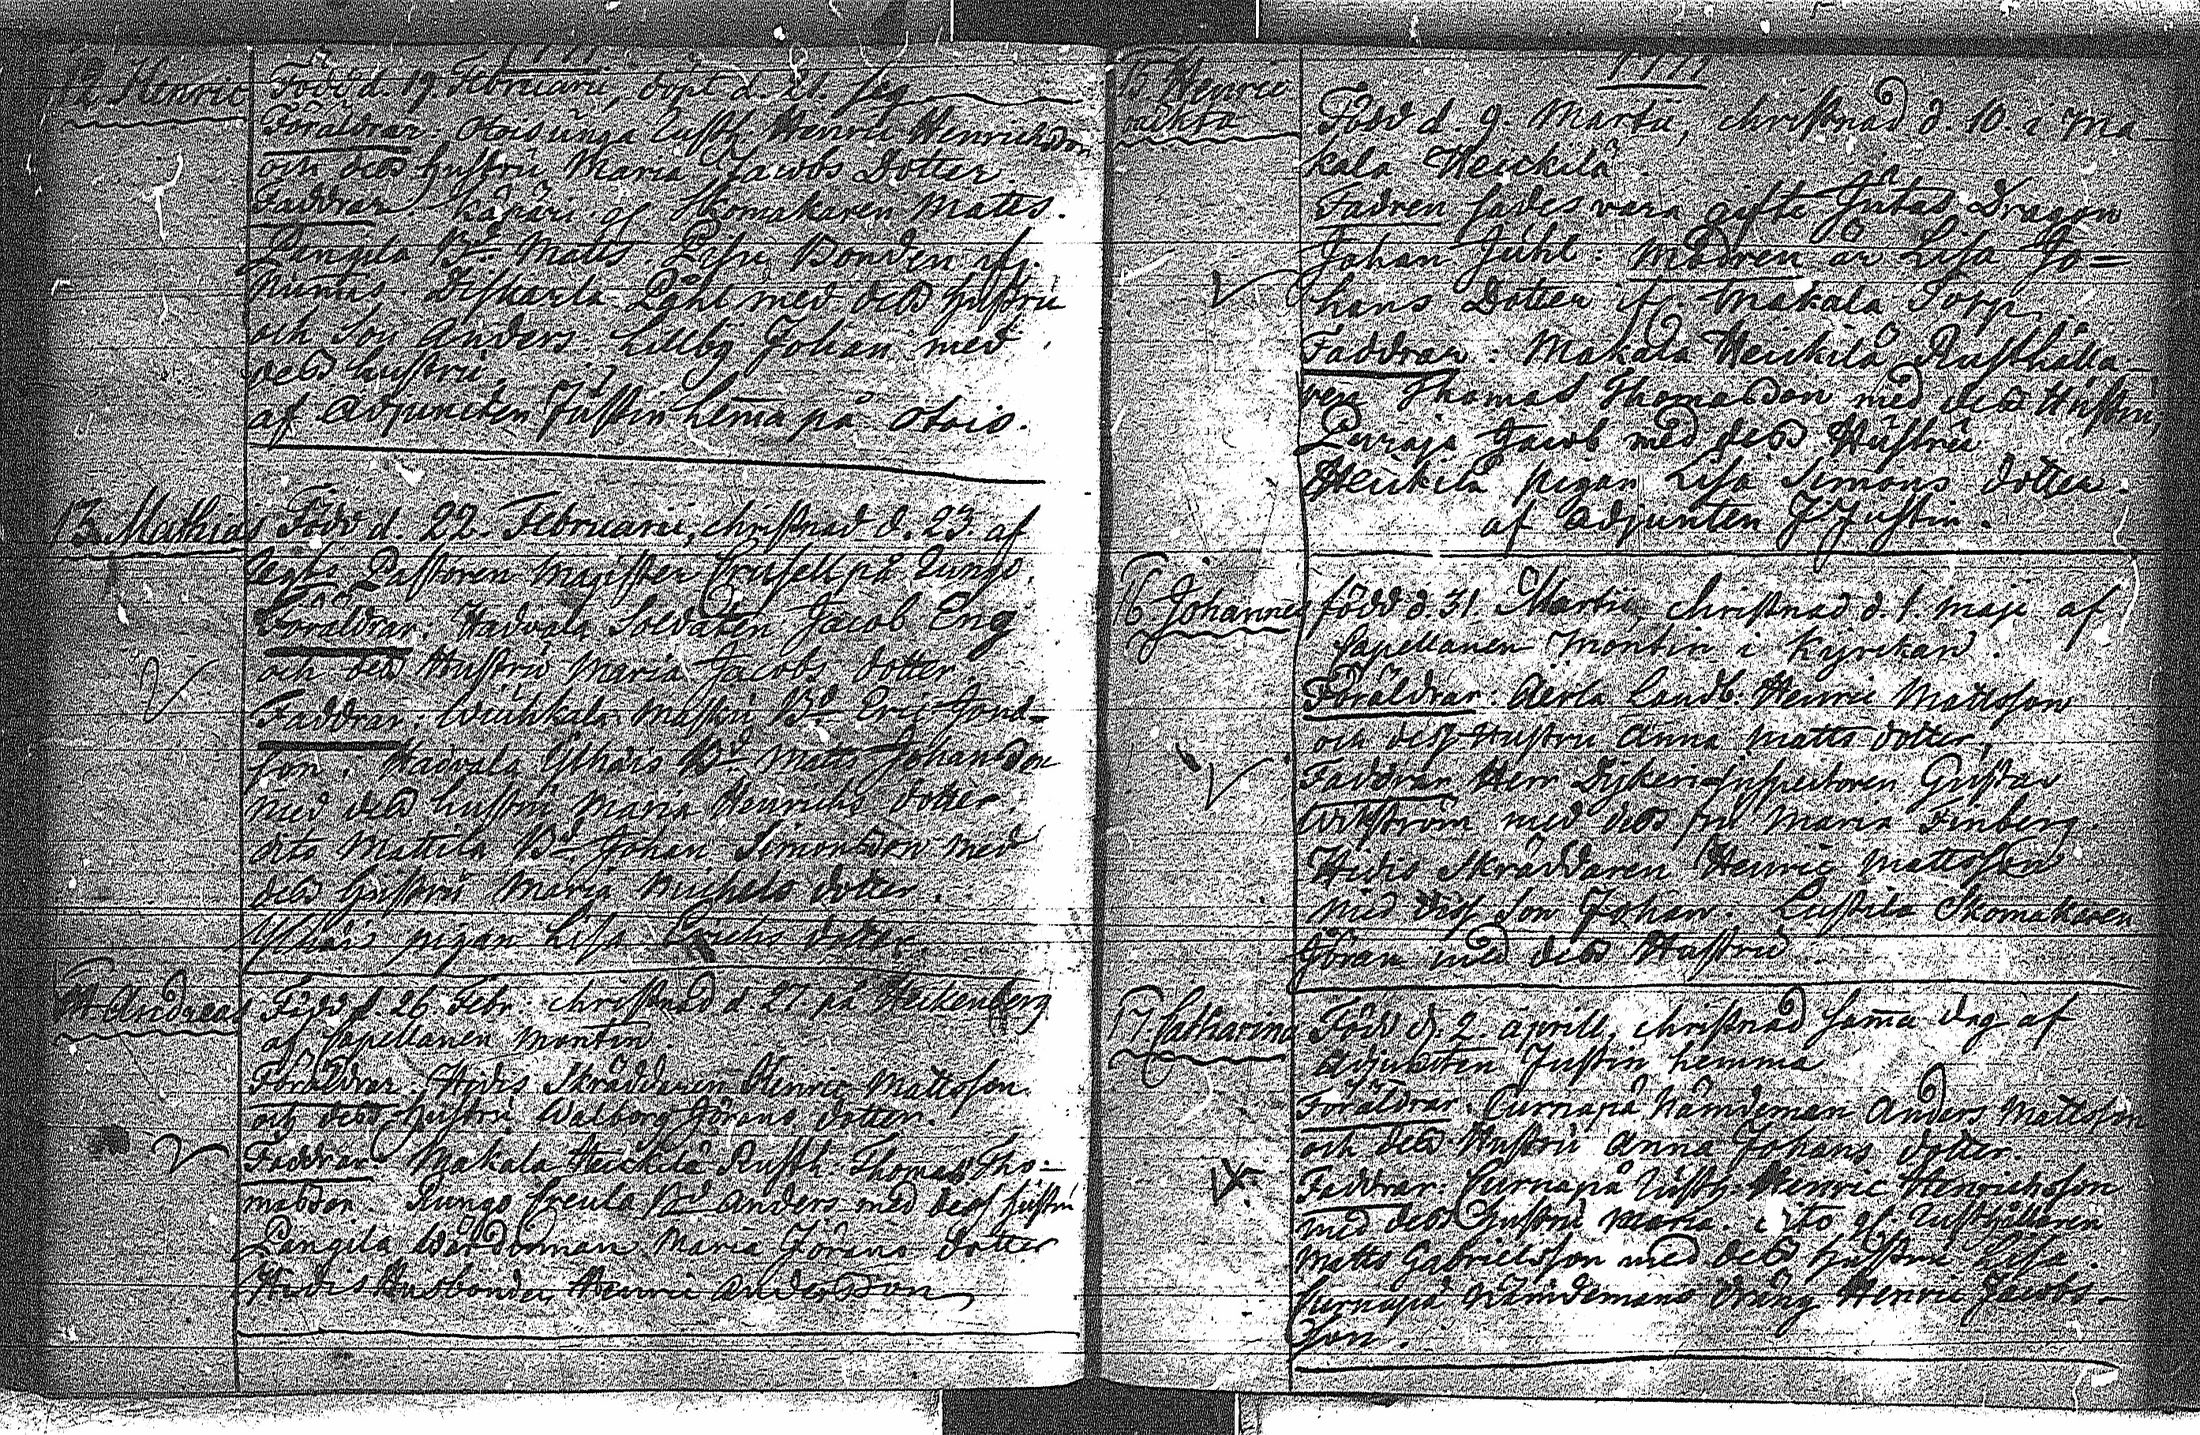 12. Henric
Född d. 19. Februarii, döpt d. 21.
Föräldrar. Otois unga Rusth. Henric Henrichsdon
och dess hustru Maria Jacobs Dotter
Faddrar. Skomakaren Matts.
Längilä Bd Matts. Bonden
Påhl med dess hustru
och Son Anders Lillby Johan med
dess hustru.
af Adjuncten Justin hema på Otois.
13. Mathias
Född d. 22. Februarii, christnad d. 23. af
Pastoren Magister Crusell på Rungo.
Föräldrar. Hadvala Soldaten Jacob Eng
och dess Hustru Maria Jacobs dotter
Faddrar. Masku Bd Eric Jons=
son. Hadvala Ylhäis Bd Matts Johansdon
med dess hustru Maria Henrichs dotter
dito Mattila Bd Johan Simonsdon med
dess hustru Maria Michels dotter.
Ylhäis pigan Lisa Erichs dotter.
14. Andreas
Född d. 26. Febr. christnad d. 27 på Heikenberg
af Capellanen Montin.
Föräldrar. Hidis Skräddaren Henric Mattsson
och dess hustru Walborg Jörans dotter.
Faddrar. Makala Heickilä Rusth. Thomas Tho=
masdon Rungo Creula Bd Anders med dess hustru
Längilä Wärdinnan Maria Jörans dotter
Hidis Husbonden Henric Andersson
1777
15 Henric
oäkta
Född d. 9. Martii, christnad d. 10. i Ma
kala Heickilä.
Fadren sades vara gifte Jutas Dragon
Johan Juhl. Modren är Lisa Jo=
hans Dotter if. Makala Torp.
Faddrar. Makala Heickilä Rusthålla
ren Thomas Thomasdon med dess Hustru,
Puraja Jacob med dess Hustru
Heickilä pigan Lisa Simons dotter.
af Adjunten J Justin.
16 Johannes
född d. 31 Martii christnad d. 1. maji af
Capellanen Montin i Kyrckan.
Föräldrar. Aerla Landb. Henric Mattsson
och dess Hustru Anna Matts dotter,
Faddrar Herr Inspectoren Gustav
Wikström med dess fru Maria Finberg.
Hidis Skräddaren Henric Mattsson
med dess son Johan. Lustila Skomakaren
Göran med dess Hustru
17. Catharina
Född d. 2. aprill, christnad samma dag af
Adjuncten Justin hemma
Föräldrar. Curnapä Nämdeman Anders Mattsson
och dess Hustru Anna Johans dotter.
Faddrar. Curnapä Rusth. Henric Henrichsson
med dess Hustru Maria. dito gl. Rusthållaren
Matts Gabrielsson med dess hustru Lisa.
Curnapä Nämdemans dräng Henric Jacobs=
son.